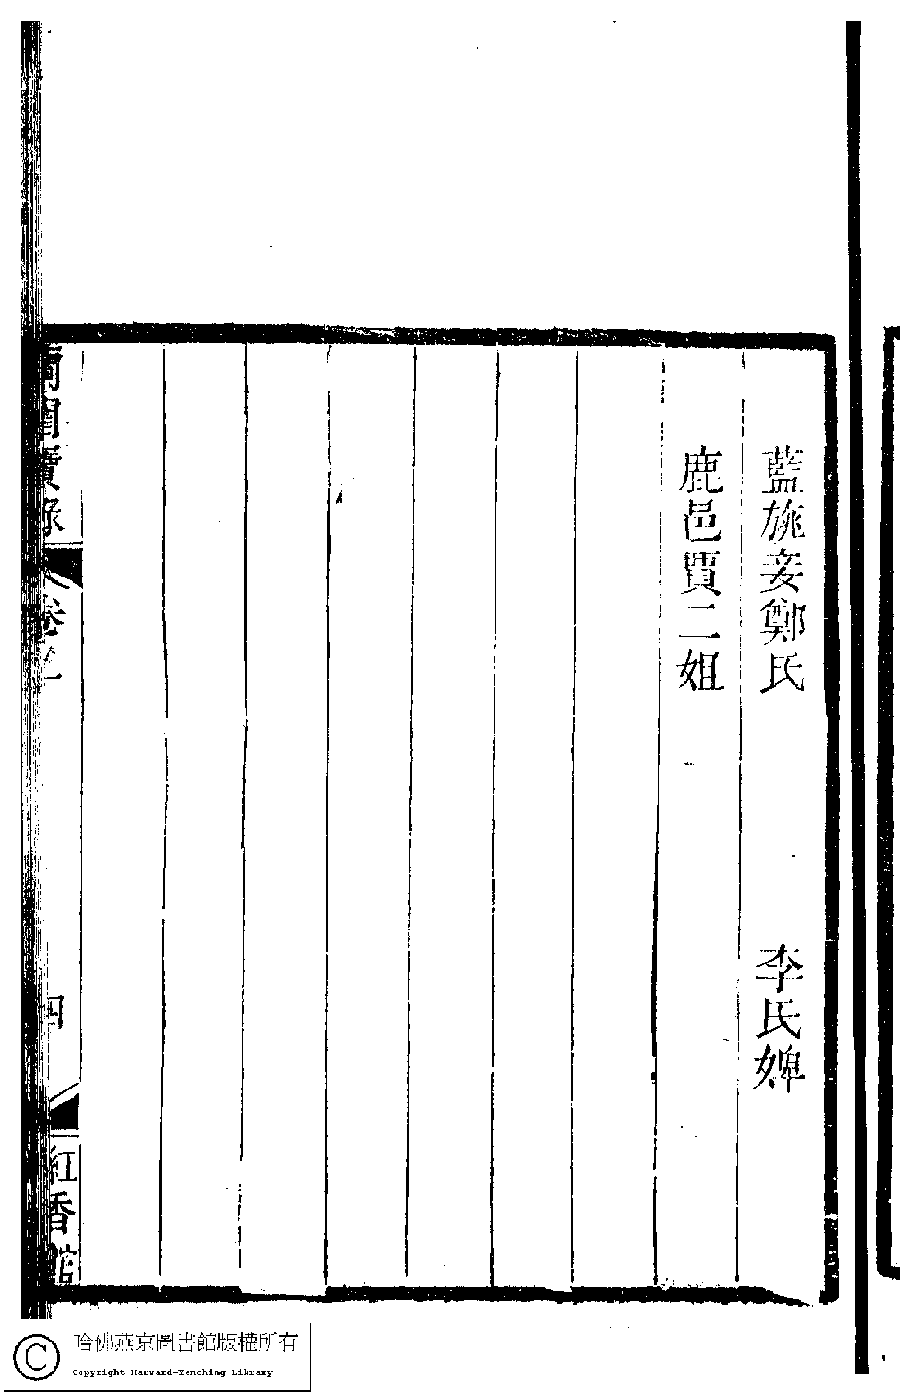 藍旎妾鄭氏 李氏婢
鹿邑賈二姐
蘭閨寶錄 卷六 四 紅香館
哈佛燕京圖書館版權所有
Copyright Harvard-Yenching Library